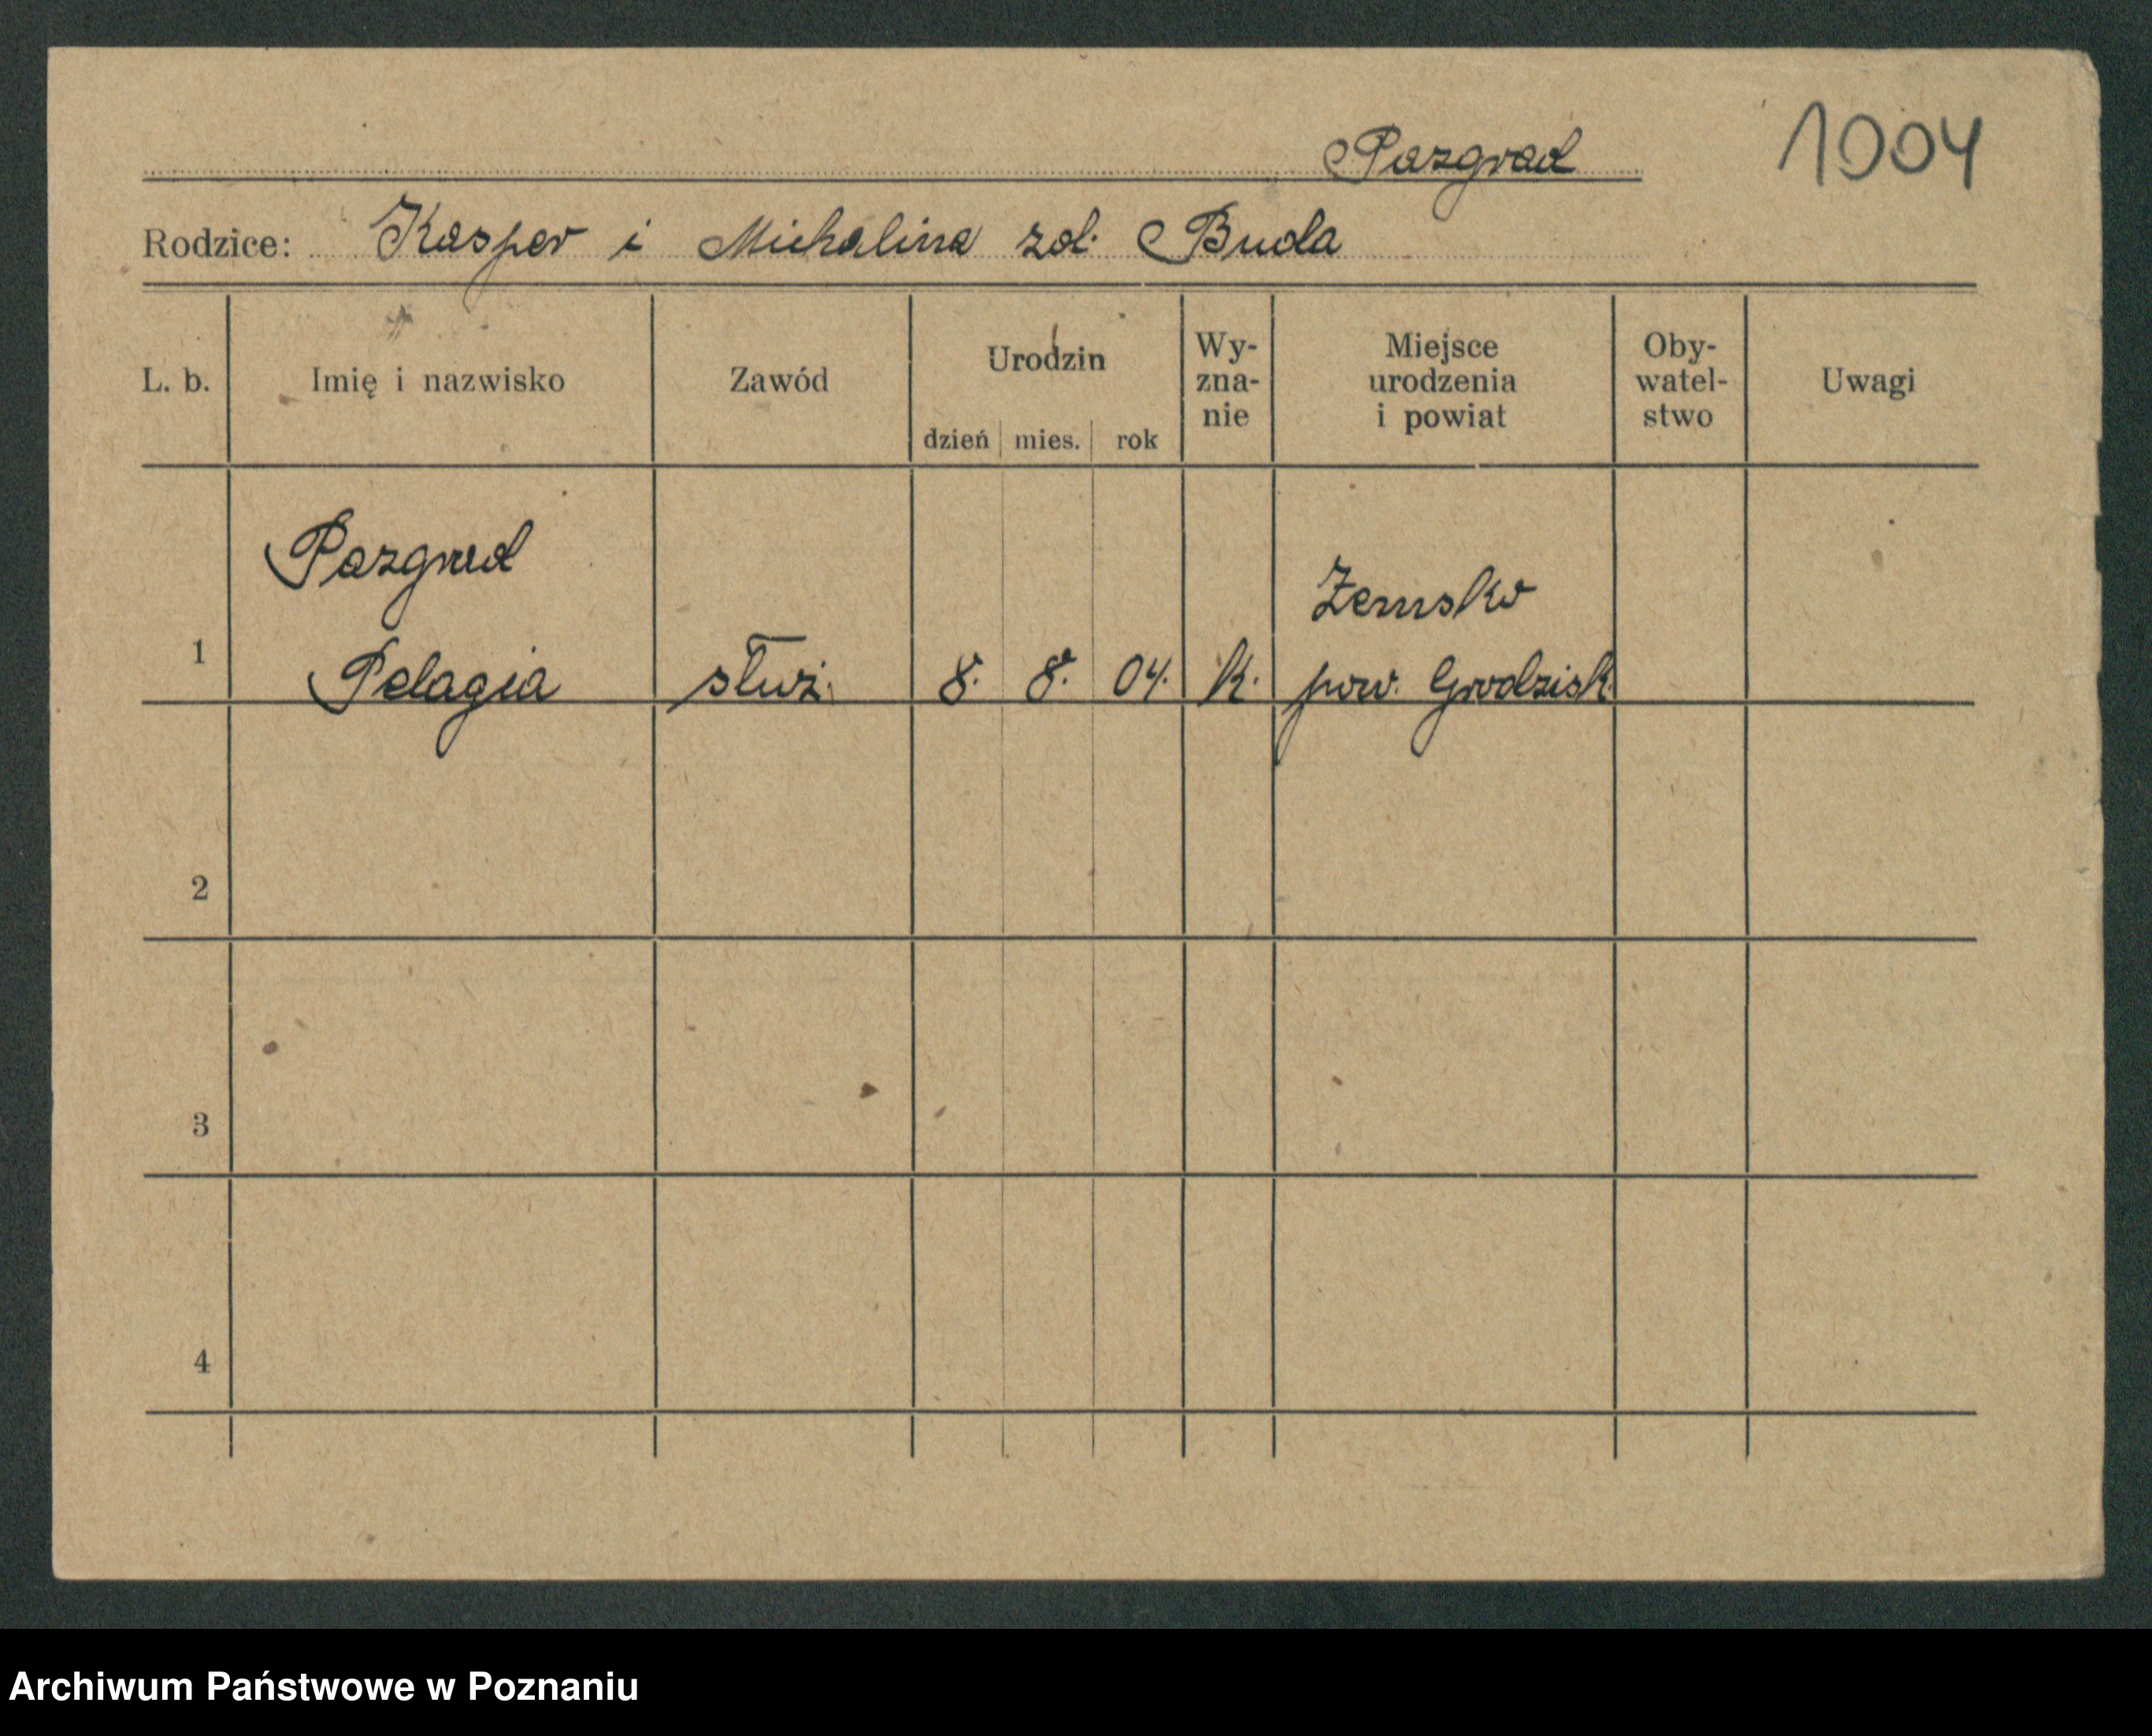 Pazgrad 1904
Rodzice: Kasper i Michalina zd. Buda
L. b. Imię i nazwisko Zawód Urodzin dzień mies. rok Wy-zna-nie Miejsce urodzenia i powiat Oby-watel-stwo Uwagi
Pazgrad Zemsko
1 Pelagia służ. 8. 8. 04. k. pow. Grodzisk
2
3
4
Archiwum Państwowe w Poznaniu